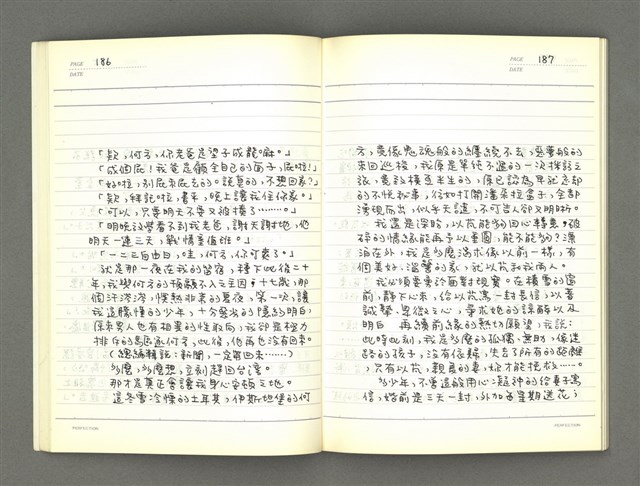 PAGE 186
DATE
「欸,何方,你老爸是望子成龍嘛。」
「成個屁!我爸是顧全自己的面子,屁啦!」
「好啦,別屁來屁去的。說真的,不想回家?」
「欸,拜託啦,書呆,晚上讓我住你家。」
「可以,只要明天不要又被揍了………。」
「明晚沒學看不到我老爸,謝天謝地,他
明天一連三天,戰情室值班。」
「一二三自由日,哇,何方,你可賺了。」
就是那一夜在我的留宿,種下此後二十
年,我與何方的預顧不入之因;十七歲,那
個汗涔涔,燠熱非常的夏夜,第一次,讓
我這朦懂的少年,十分驚惶的隱約明白;
原來男人也有相妻的性取向,我卻是極力
排斥的馬臣逐何方,此後,他再也沒有回來。
(總編輯說:新聞,一定要回來……)
多麼,多麼想,立刻趕回台灣。
那才是真正會讓我身心安頓之地。
這冬雪冷慄的土耳其,伊斯坦堡的何
PERFECTION
PAGE 187
DATE
方,竟像鬼魂般的纏繞不去,惡夢般的
來回巡梭,我原是單純不過的一次採訪之
旅,竟被橫亙半生的,原已認為早就忘却
的不悅秘事,彷如打開潘朵拉盒子,全部
湧現而出,似乎天譴,不可告人卻又明晰。
我還是深盼,以苡能夠回心轉意。破
碎的情緣能再予以重圓,能不能夠?漂
泊在外,我是多麼渴求像以前一樣,有
個美好、溫馨的家,就以苡和我兩人。
我必須要勇於面對現實。在積雪的窗
前,靜下心來,給以苡寫一封長信,以著
誠摯、卑微之心,尋求她的諒解以及
明白,再續前緣的熱切願望,我說:
此時此刻,我是多麼的孤獨、無助,像迷
路的孩子,沒有依歸,失去了所有的距離
,只有以苡,親愛的妻,妳才能拯救……。
多少年,不曾這般用心、凝神的給妻子寫
信,婚前是三天一封,外加每星期送花;
PERFECTION